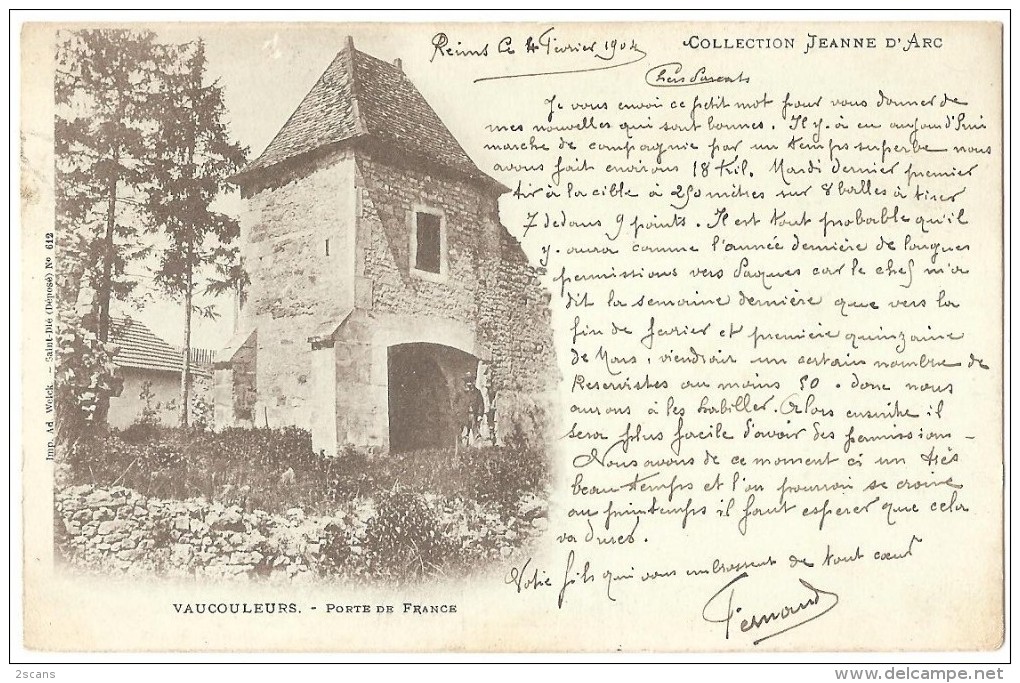 COLLECTION JEANNE D'ARC
Reims Ce 4 Fevrier 1904
Chers Parents
Je vous envoi ce petit mot pour vous donner de
mes nouvelles qui sont bonnes. Il y. à eu aujourd'hui
marche de compagnie par un temps superbe nous
avons fait environs 18 Kil. Mardi dernier premier
tir à la cible à 250 mètres sur 8 balles à tirer
7 dedans 9 points. Il est tout probable qu'il
y. aura comme l'année dernière de longues
permissions vers Paques car le chef m'a
dit la semaine dernière que vers la
fin de fevrier et première quinzaine
de Mars, viendrait un certain nombre de
Reservistes au moins 50. donc nous
aurons à les habiller. Alors ensuite il
sera plus facile d'avoir des permissions -
Nous avons de ce moment ci un très
beau temps et l'on pourrait se croire
au printemps il faut esperer que cela
va durer.
Votre fils qui vous embrassent de tout cœur
Fernand
Imp. Ad. Weick. - Saint-Dié (Déposé) No 612
VAUCOULEURS. - PORTE DE FRANCE
2scans
www.delcampe.net